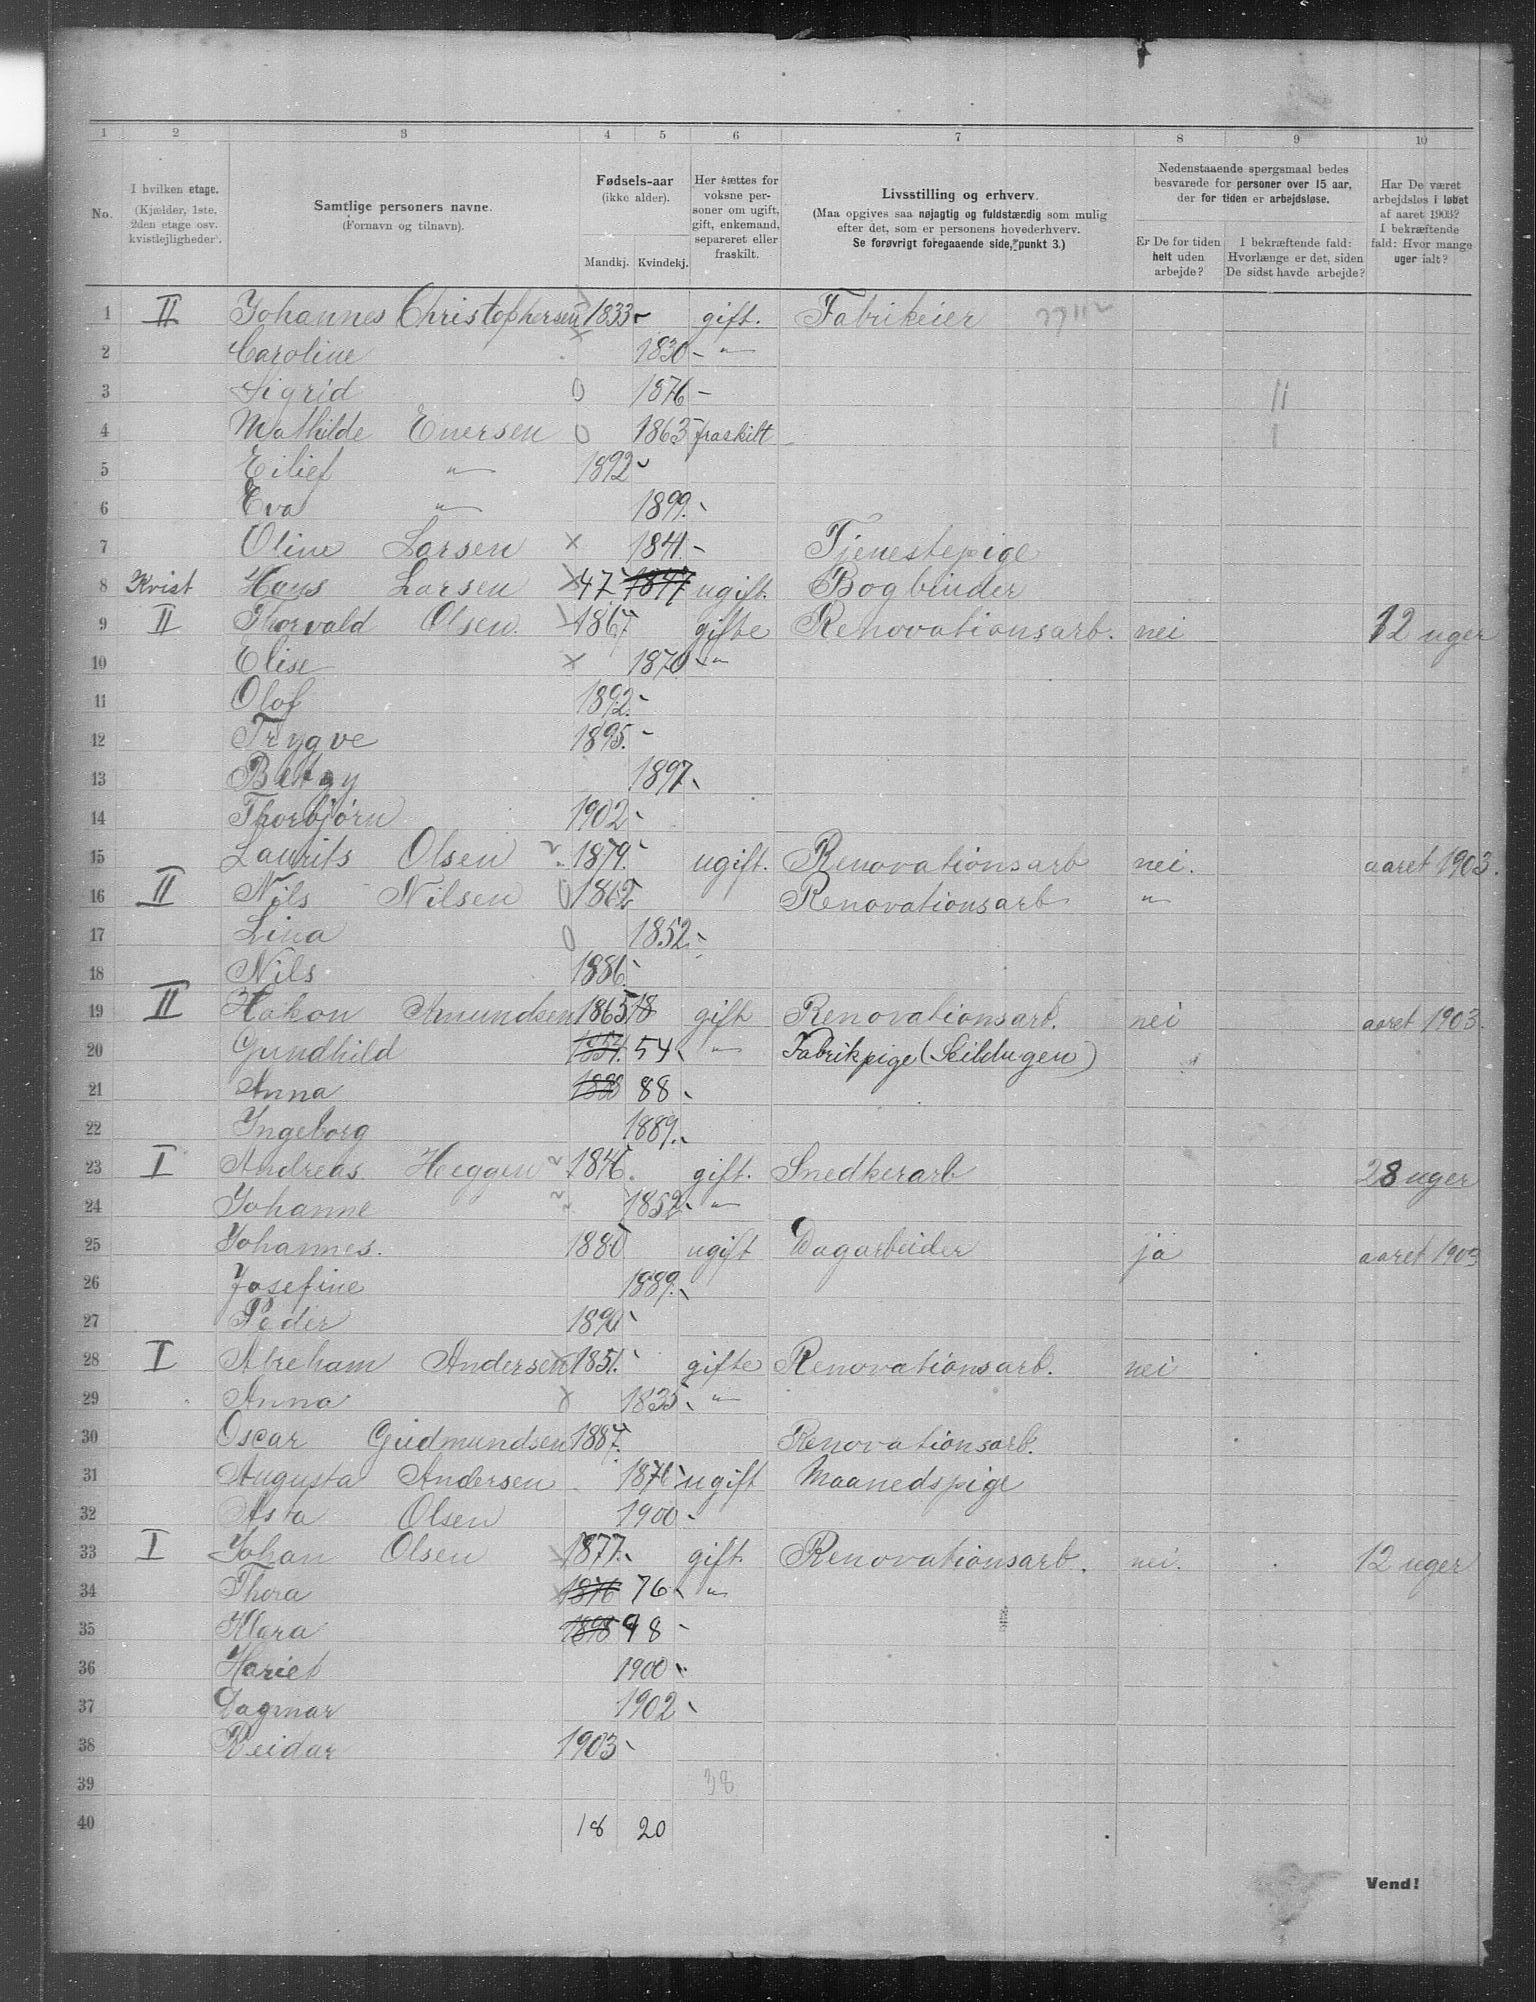 1 2 3 4 5 6 7 8 9 10
No.
I hvilken etage.
(Kjælder, 1ste, 2den etage osv. kvistlejligheder.
Samtlige personers navne.
(Fornavn og tilnavn).
Fødsels-aar
(ikke alder).
Mandkj. Kvindekj.
Her sættes for voksne personer om ugift, gift, enkemand, separeret eller fraskilt.
Livsstilling og erhverv.
(Maa opgives saa nøjagtig og fuldstærdig som mulig efter det, som er personens hovederhverv.
Se forøvrigt foregaaende side, punkt 3.)
Nedenstaaende spørgsmaal bedes besvarede for personer over 15 aar, der for tiden er arbejdsløse.
Er De for tiden helt uden arbejde?
I bekræftende fald: Hvorlænge er det, siden De sidst havde arbejde?
Har De været arbejdsløs i løbet af aaret 1903? I bekræftende fald: Hvor mange uger ialt?
1 II Johannes Christophersen 1833 gift. Fabrikeier
2 Caroline 1830 - "
3 Sigrid 0 1876 -
4 Mathilde Enersen 0 1863 fraskilt
5 Eilief " 1892
6 Eva " 1899.
7 Oline Larsen x 1841. - Tjenestepige
8 Kvist Hans Larsen x 47 1847 ugift. Bogbinder
9 II Thorvald Olsen. 1867 gifte Renovationsarb. nei 12 uger
10 Elise x 1870 "
11 Olof 1892.
12 Trygve 1895. -
13 Betzy 1897.
14 Thorbjørn 1902
15 Laurits Olsen 1879. ugift. Renovationsarb nei. aaret 1903.
16 II Nils Nilsen 0 1862 Renovationsarb "
17 Lina 0 1852.
18 Nils 1886.
19 II Hakon Amundsen 1865 gift Renovationsarb. nei aaret 1903.
20 Gundhild 1854. 54 " Fabrikpige (Skildugen)
21 Anna 1888 88
22 Ingeborg 1889.
23 I Andreas. Heggen 1846. gift. Snedkerarb 28 uger
24 Johanne 1852 "
25 Johannes. 1880 ugift Dagarbeider ja aaret 1903
26 Josefine 1889.
27 Peder 1890
28 I Abreham Andersen 1851. gifte Renovationsarb. nei
29 Anna x 1835 "
30 Oscar Gudmundsen 1887. Renovationsarb.
31 Augusta Andersen 1876 ugift Maanedspige
32 Asta Olsen 1900 -
33 I Johan Olsen 1877. gift. Renovationsarb. nei. 12 uger
34 Thora 1876 76 "
35 Klara 1898 98 -
36 Hariet 1900
37 Dagmar 1902
38 Reidar 1903 -
39 38
40 18 20
Vend!